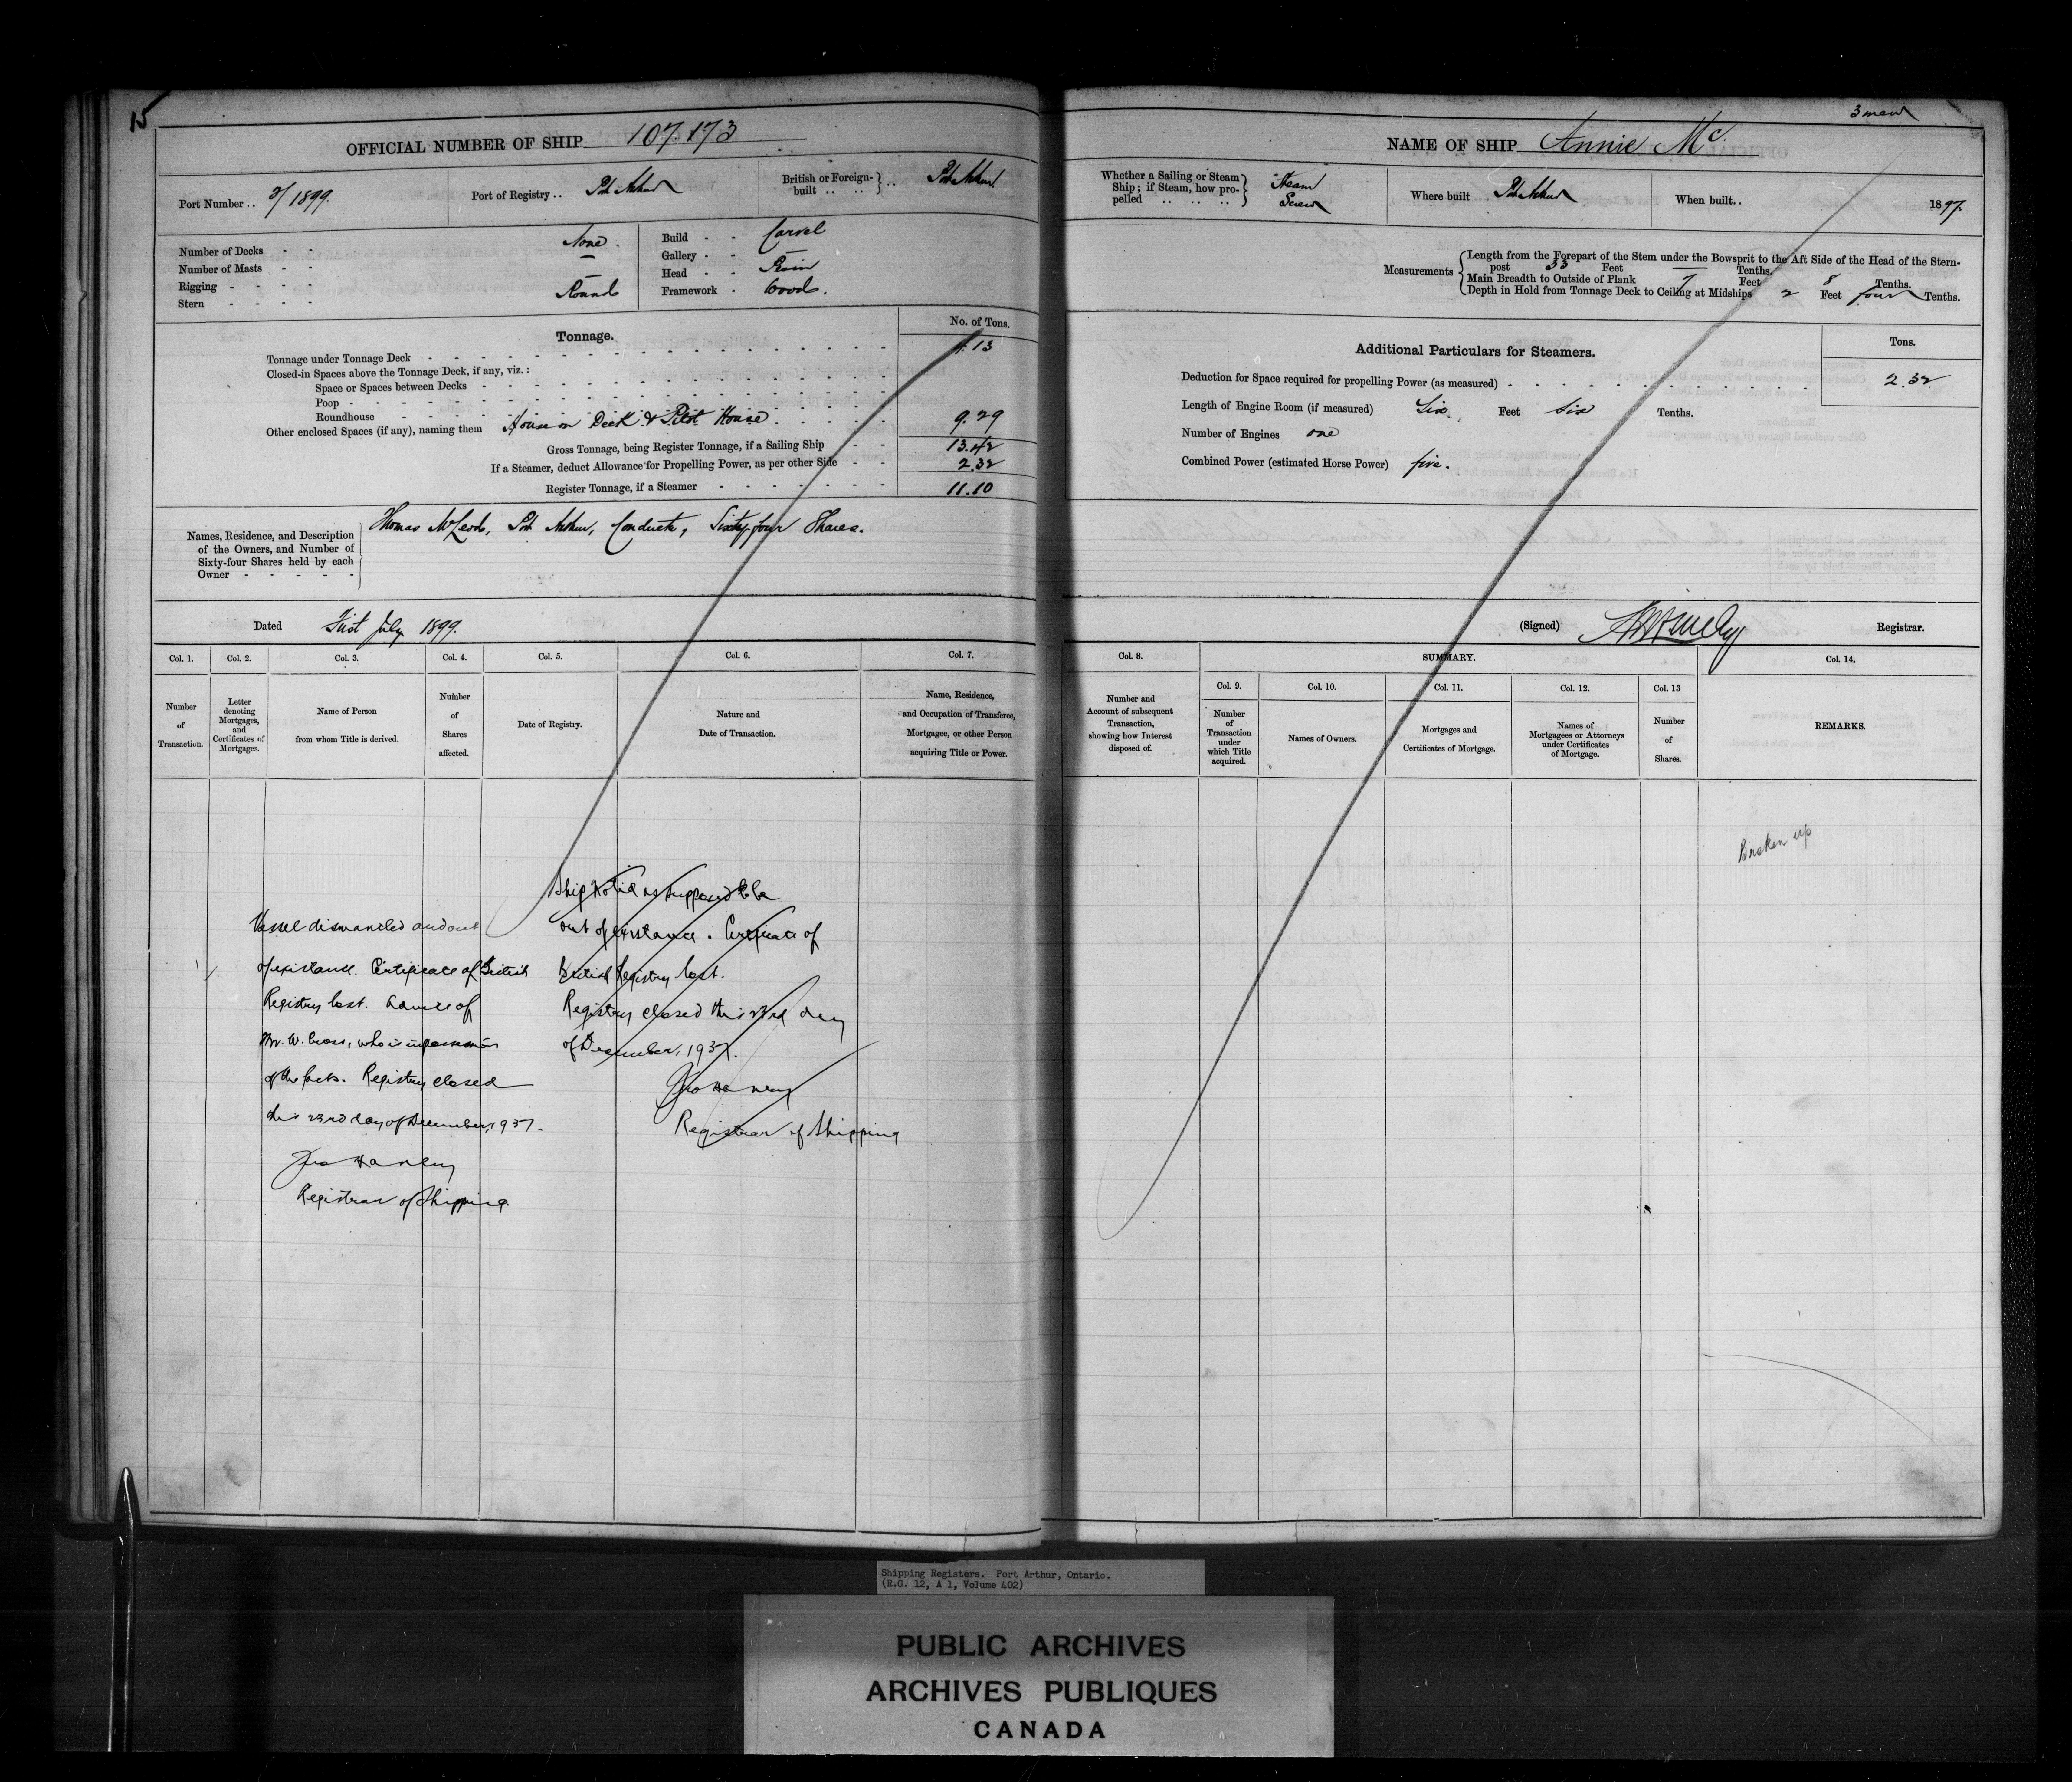 15
OFFICIAL NUMBER OF SHIP 107.173
Port Number .. 2/1899.
Port of Registry .. Port Arthur
British or Foreign-built .. .. } .. Port Arthur
Number of Decks - - None.
Number of Masts - - —
Rigging - - - - —
Stern - - - - Round
Build - - Carvel
Gallery - - —
Head - - Plain
Framework - Wood.
Tonnage.
No. of Tons.
Tonnage under Tonnage Deck 4.13
Closed-in Spaces above the Tonnage Deck, if any, viz. :
Space or Spaces between Decks
Poop
Roundhouse
Other enclosed Spaces (if any), naming them House on Deck & Pilot House 9.29
Gross Tonnage, being Register Tonnage, if a Sailing Ship 13.42
If a Steamer, deduct Allowance for Propelling Power, as per other Side 2.32
Register Tonnage, if a Steamer 11.10
Names, Residence, and Description
of the Owners, and Number of
Sixty-four Shares held by each
Owner
Thomas McLeod, Port Arthur, Conductor, Sixty four Shares.
Dated First July 1899.
Col. 1.
Col. 2.
Col. 3.
Col. 4.
Col. 5.
Col. 6.
Col. 7.
Number
of
Transaction.
Letter
denoting
Mortgages,
and
Certificates of
Mortgages.
Name of Person
from whom Title is derived.
Number
of
Shares
affected.
Date of Registry.
Nature and
Date of Transaction.
Name, Residence,
and Occupation of Transferee,
Mortgagee, or other Person
acquiring Title or Power.
Vessel dismantled and out
of existance. Certificate of British
Registry lost. Advice of
Mr. W. Cross, who is in possession
of the facts. Registry closed
this 23rd day of December, 1937.
Registrar of Shipping.
Ship Sold is supposed to be
out of existance. Certificate of
British Registry lost.
Registry closed this 23rd day
of December, 1937.
Registrar of Shipping
3 men
NAME OF SHIP Annie Mc.
Whether a Sailing or Steam
Ship ; if Steam, how pro-
pelled .. .. ..
Steam
Screw
Where built Port Arthur
When built.. 1897.
Measurements
Length from the Forepart of the Stem under the Bowsprit to the Aft Side of the Head of the Stern-
post 33 Feet — Tenths.
Main Breadth to Outside of Plank 7 Feet 8 Tenths.
Depth in Hold from Tonnage Deck to Ceiling at Midships 2 Feet four Tenths.
Additional Particulars for Steamers.
Tons.
Deduction for Space required for propelling Power (as measured) 2.32
Length of Engine Room (if measured) Six Feet Six Tenths.
Number of Engines one
Combined Power (estimated Horse Power) five.
(Signed)
Registrar.
Col. 8.
SUMMARY.
Col. 14.
Col. 9.
Col. 10.
Col. 11.
Col. 12.
Col. 13
Number and
Account of subsequent
Transaction,
showing how Interest
disposed of.
Number
of
Transaction
under
which Title
acquired.
Names of Owners.
Mortgages and
Certificates of Mortgage.
Names of
Mortgagees or Attorneys
under Certificates
of Mortgage.
Number
of
Shares.
REMARKS.
Broken up
Shipping Registers. Port Arthur, Ontario.
(R.G. 12, A 1, Volume 402)
PUBLIC ARCHIVES
ARCHIVES PUBLIQUES
CANADA